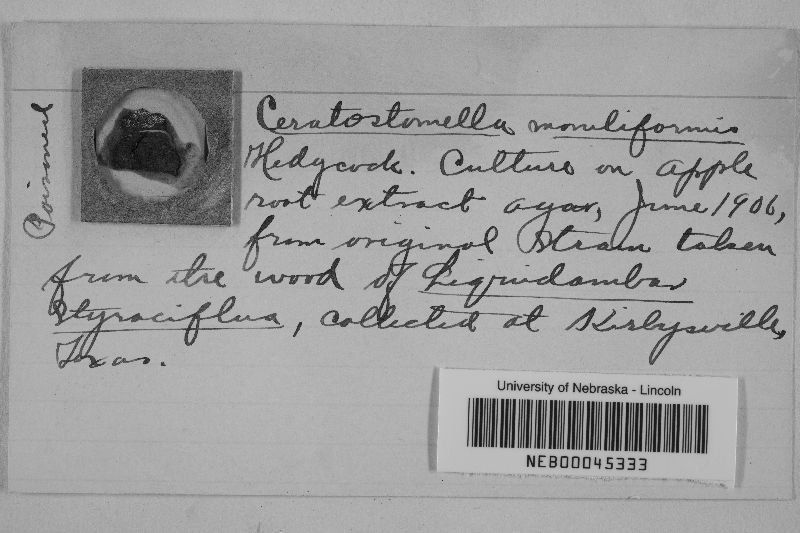 Poisoned
Ceratostomella moniliformis
Hedgcock. Culture on apple
root extract agar, June 1906,
from original strain taken
from the wood of Liquidambar
styraciflua, collected at Kirbysville,
Texas.
University of Nebraska - Lincoln
NEB00045333